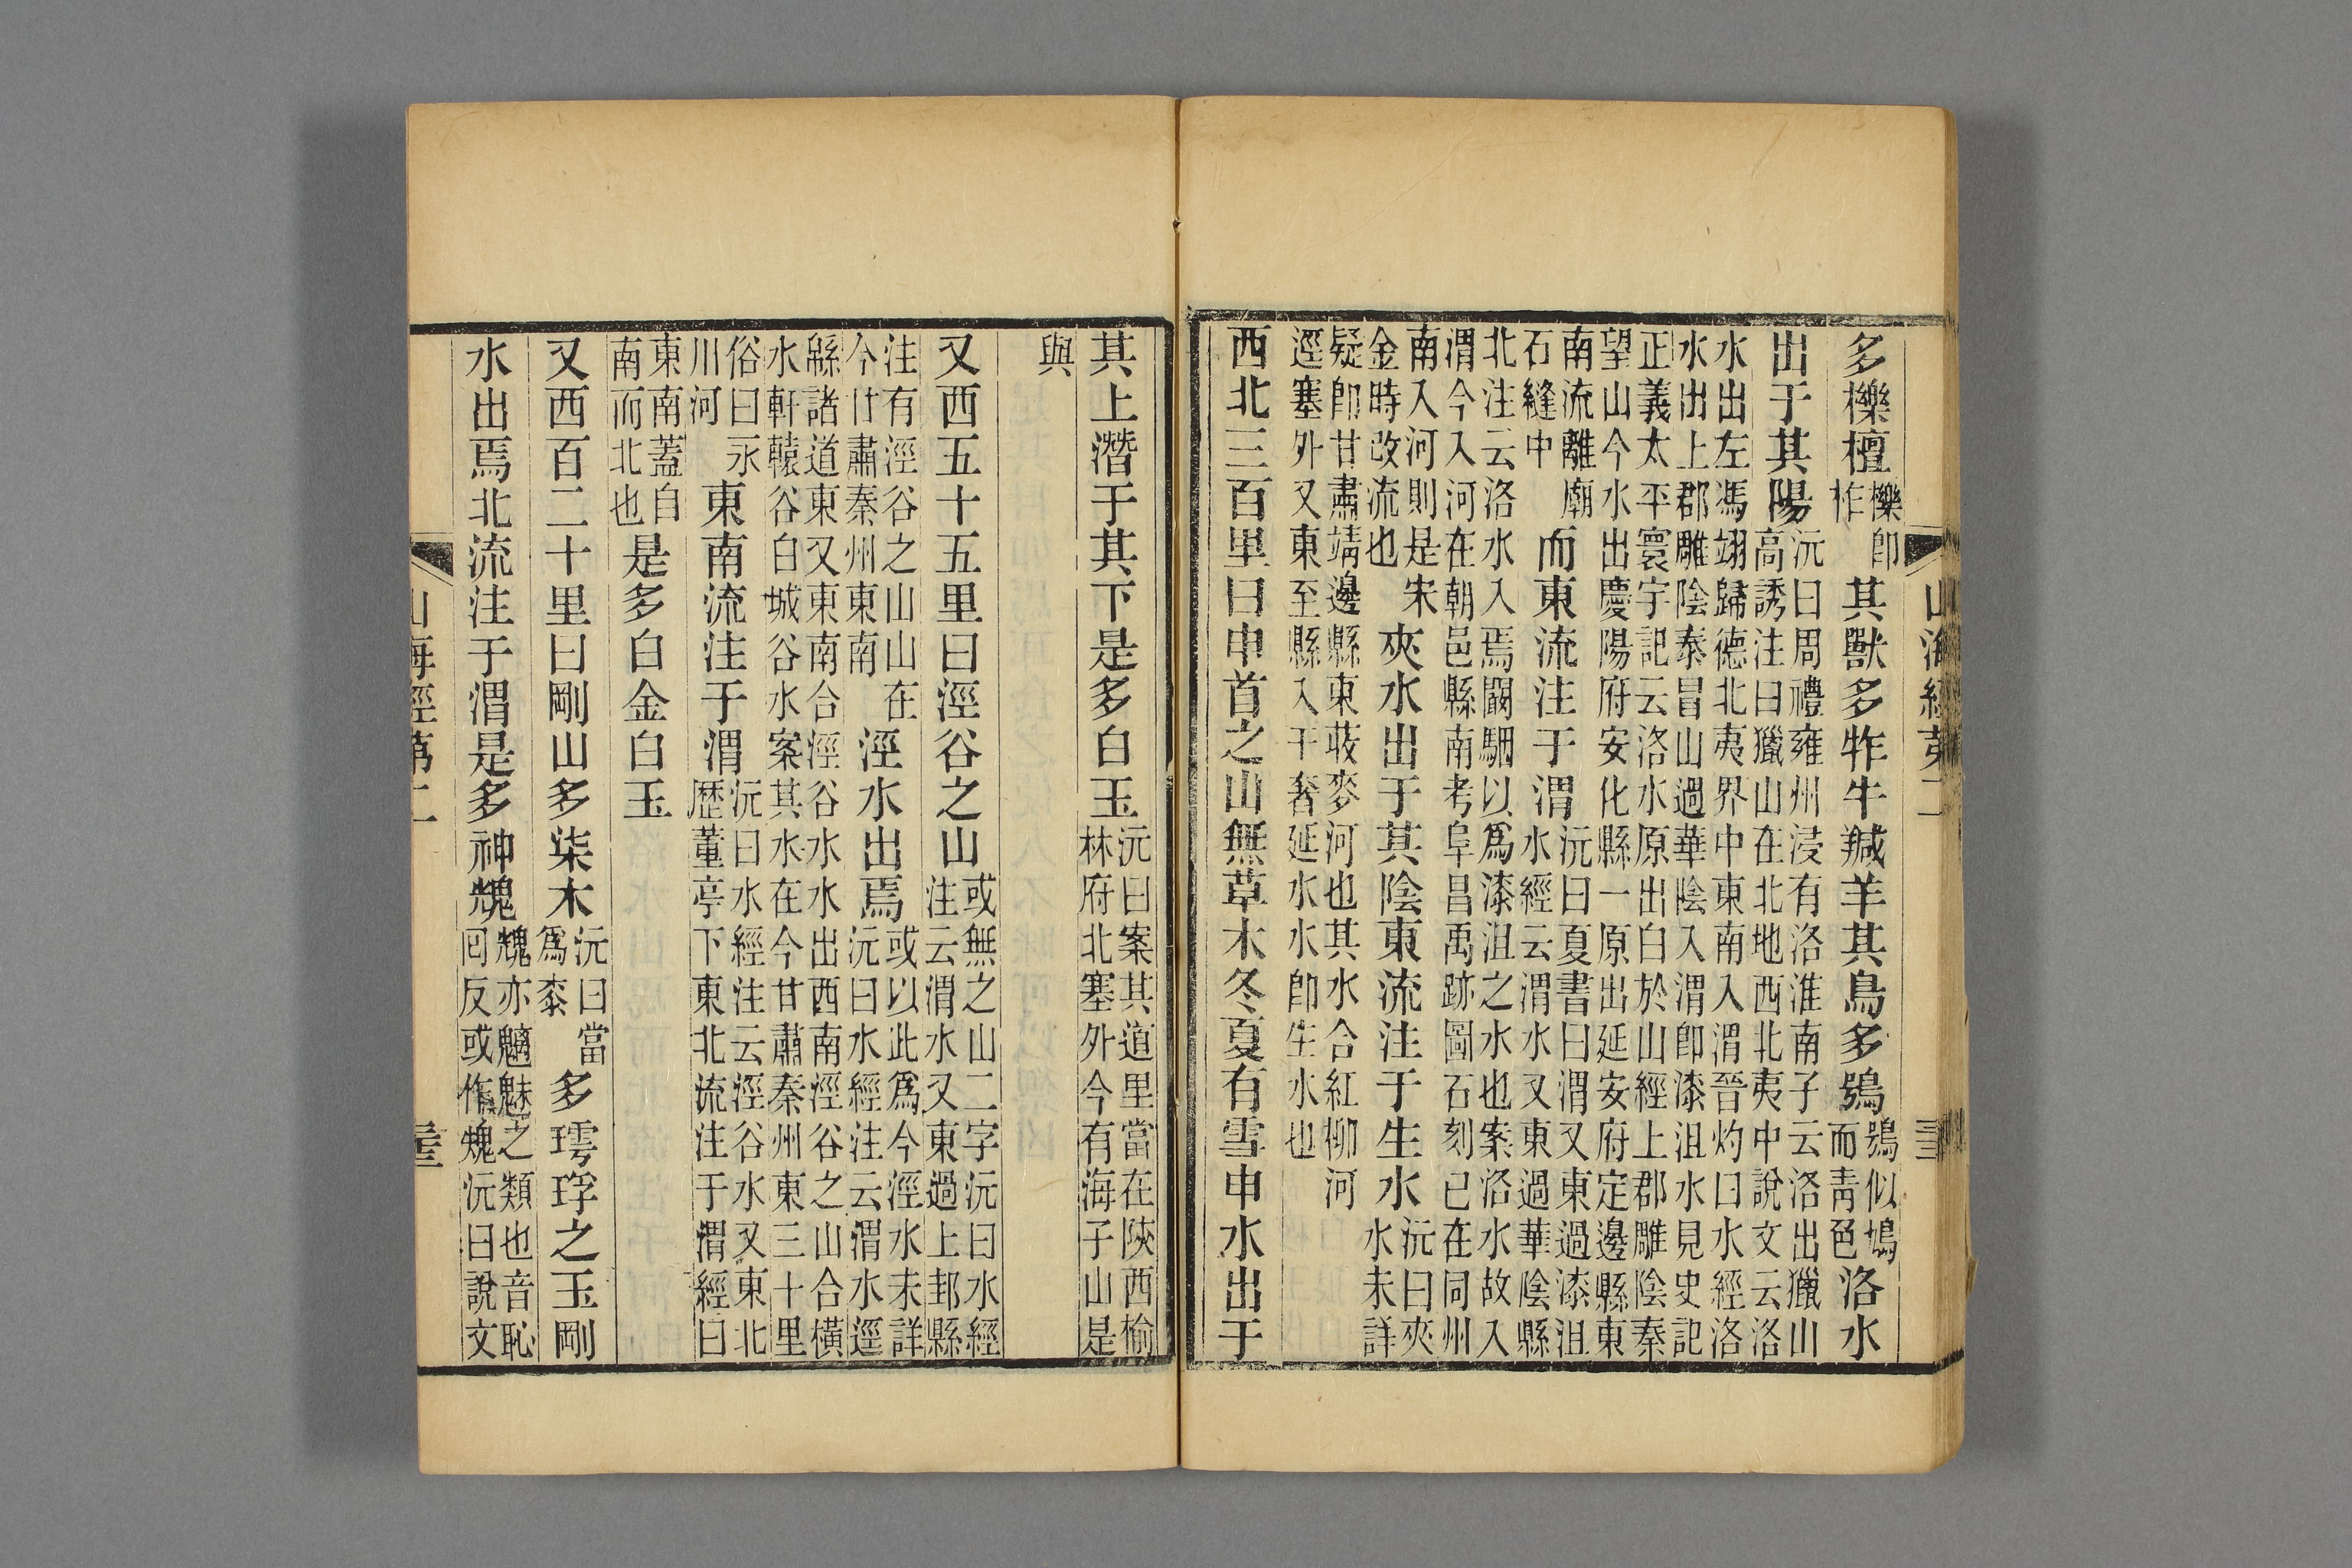 山海經第二
多櫟檀櫟卽柞其獸多㸲牛羬羊其鳥多鴞鴞似鳩而青色洛水
出于其陽沅曰周禮雍州浸有洛淮南子云洛出獵山高誘注曰獵山在北地西北夷中說文云洛
水出左馮翊歸德北夷界中東南入渭晉灼曰水經洛水出上郡雕陰泰冒山過華陰入渭卽漆沮水見史記
正義太平寰宇記云洛水原出白於山經上郡雕陰秦望山今水出慶陽府安化縣一原出延安府定邊縣東
南流離廟石縫中而東流注于渭沅曰夏書曰渭又東過漆沮水經云渭水又東過華陰縣
北注云洛水入焉闞駰以爲漆沮之水也案洛水故入渭今入河在朝邑縣南考阜昌禹跡圖石刻已在同州
南入河則是宋金時改流也夾水出于其陰東流注于生水沅曰夾水未詳
疑卽甘肅靖邊縣東荍麥河也其水合紅柳河逕塞外又東至縣入干奢延水水卽生水也
西北三百里曰申首之山無草木冬夏有雪申水出于
其上潛于其下是多白玉沅曰案其道里當在陝西榆林府北塞外今有海子山是
與
又西五十五里曰涇谷之山或無之山二字沅曰水經注云渭水又東過上邽縣
注有涇谷之山山在今甘肅秦州東南涇水出焉或以此爲今涇水未詳沅曰水經注云渭水逕
緜諸道東又東南合涇谷水水出西南涇谷之山合橫水軒轅谷白城谷水案其水在今甘肅秦州東三十里
俗曰永川河東南流注于渭沅曰水經注云涇谷水又東北歷董亭下東北流注于渭經曰
東南蓋自南而北也是多白金白玉
又西百二十里曰剛山多柒木沅曰當爲桼多㻬琈之玉剛
水出焉北流注于渭是多神䰠䰠亦魑魅之類也音恥回反或作沅曰說文
山海經第二